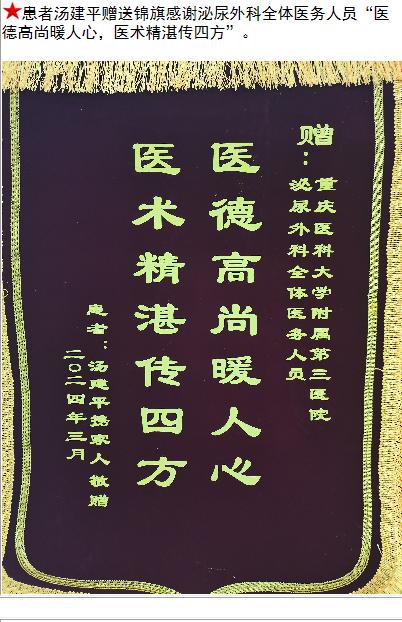 ★患者汤建平赠送锦旗感谢泌尿外科全体医务人员“医
德高尚暖人心，医术精湛传四方”。
赠：
重庆医科大学附属第三医院
泌尿外科全体医务人员
医德高尚暖人心
医术精湛传四方
患者：汤建平携家人敬赠
二〇二四年三月